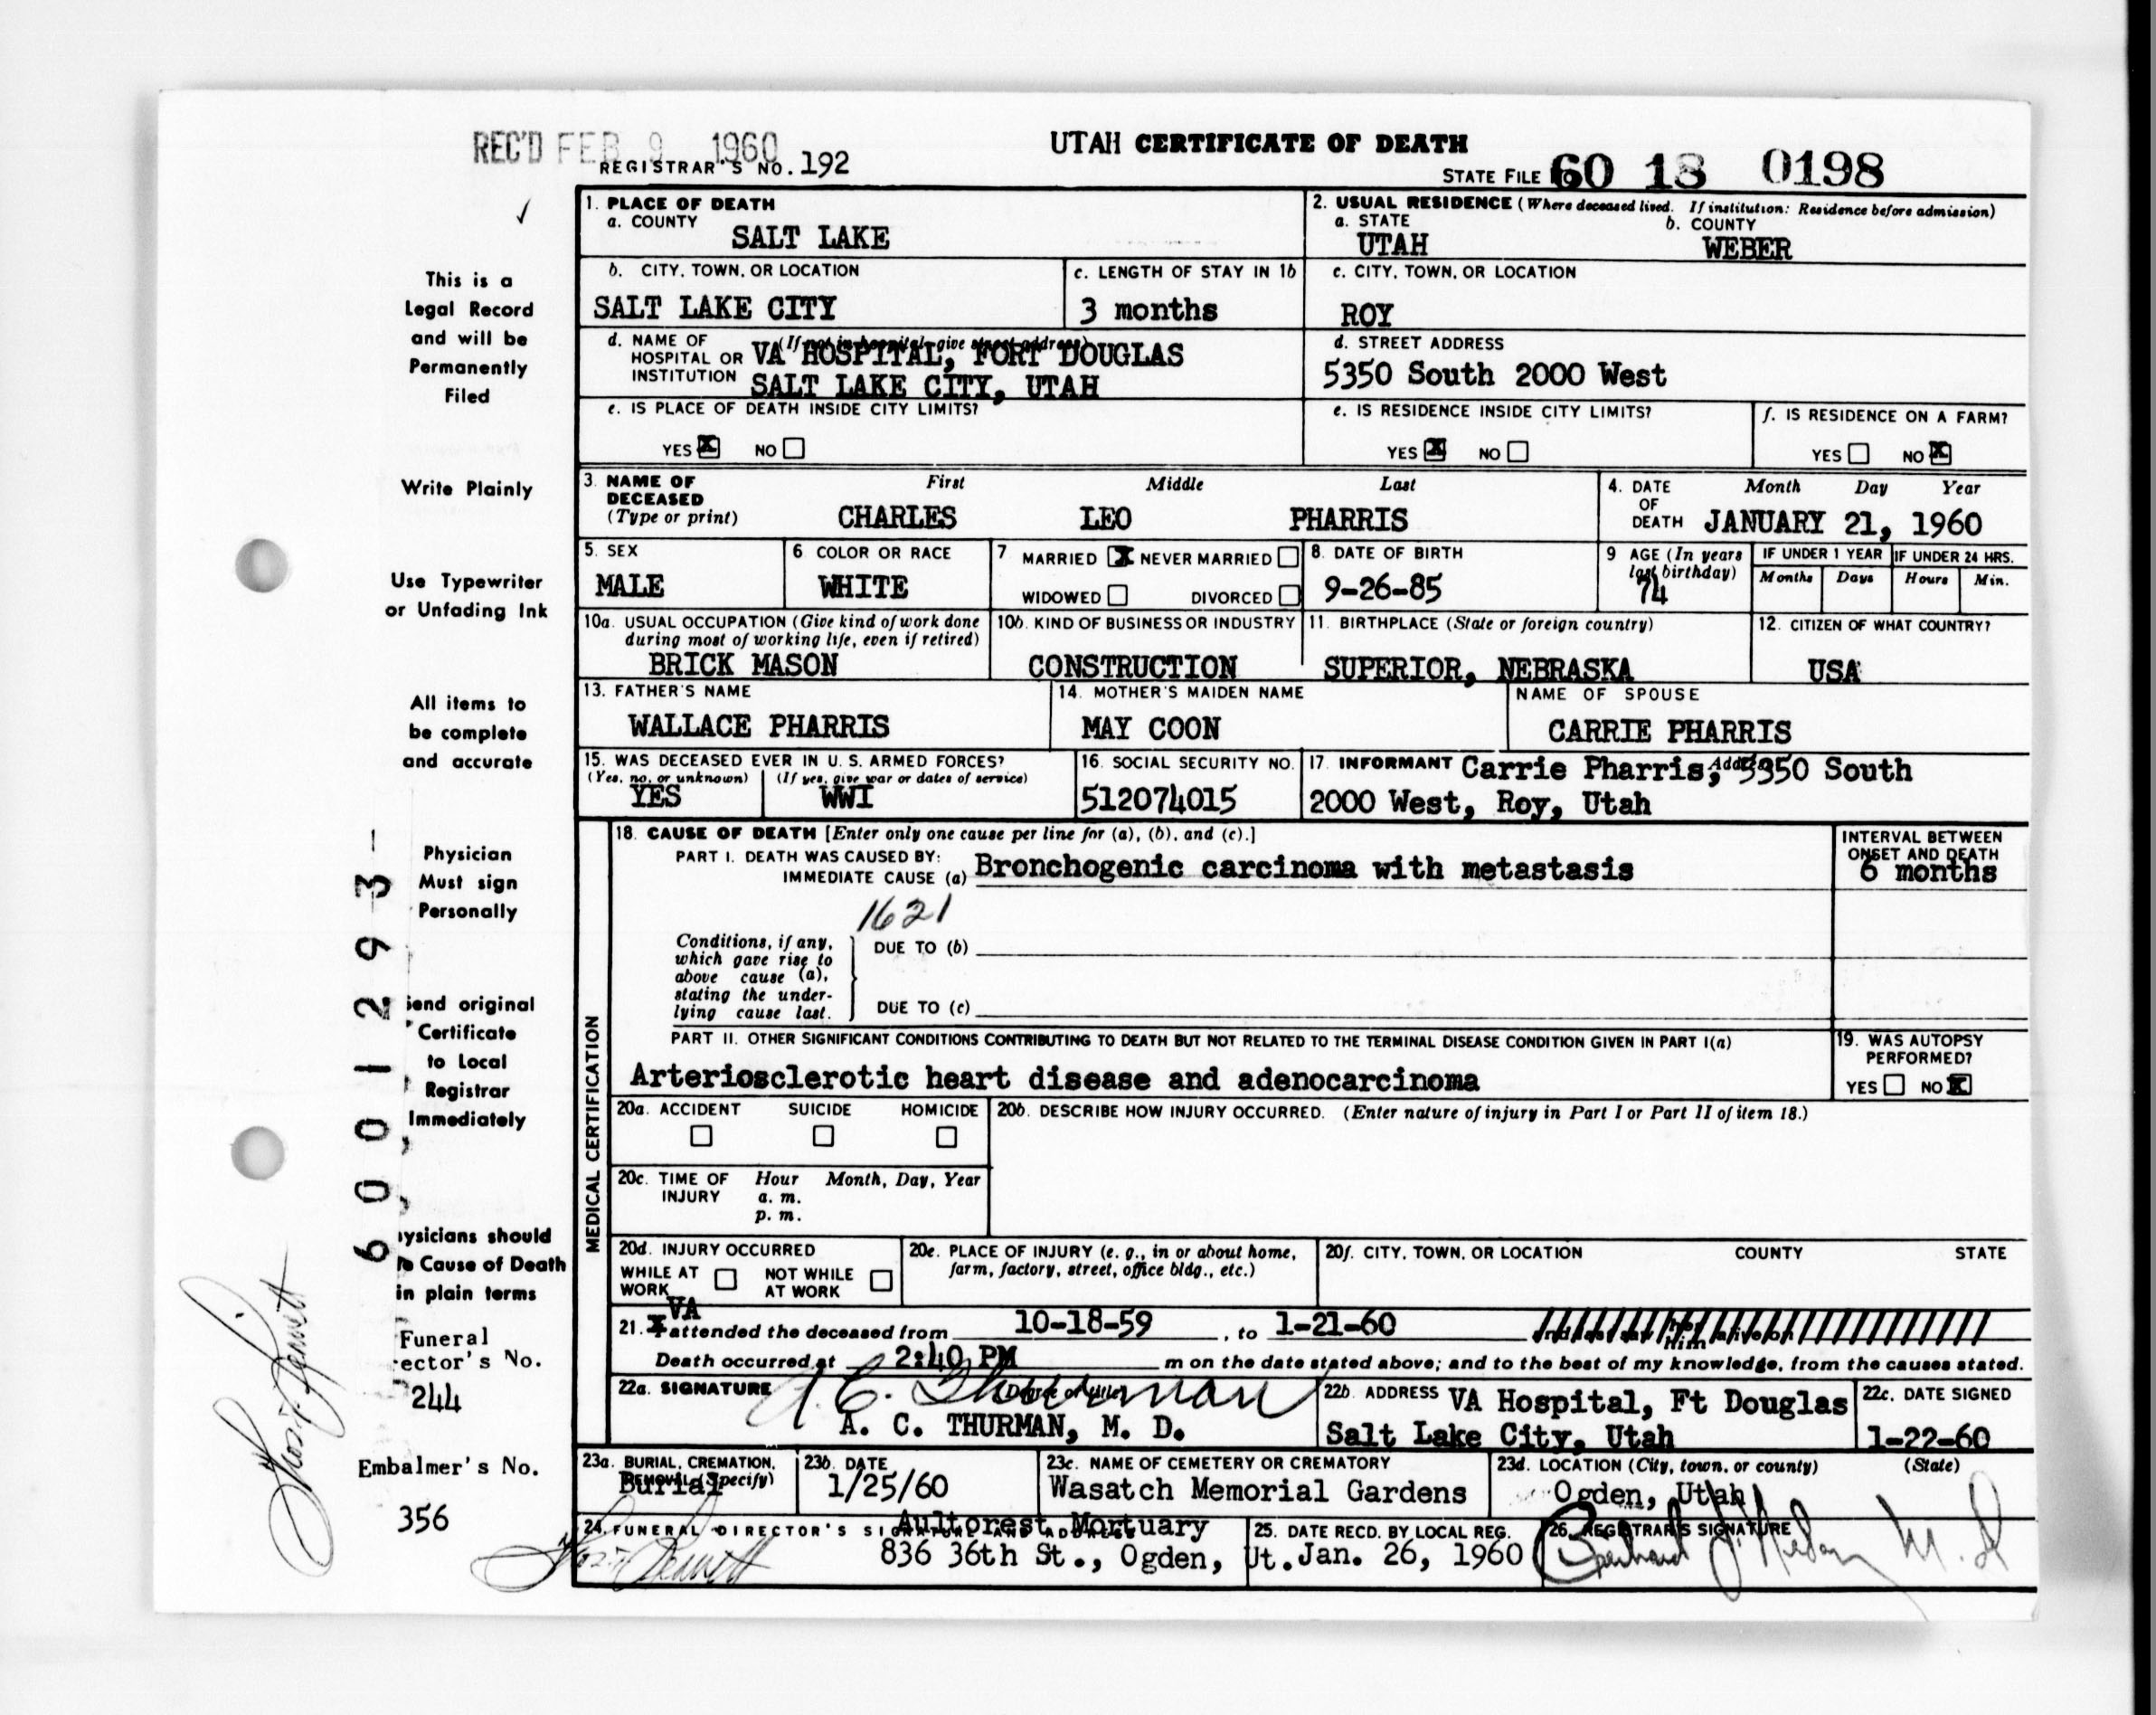 REC'D FEB 9 1960
REGISTRAR'S NO. 192
UTAH CERTIFICATE OF DEATH
STATE FILE 60 18 0198
This is a
Legal Record
and will be
Permanently
Filed
Write Plainly
Use Typewriter
or Unfading Ink
All items to
be complete
and accurate
Physician
Must sign
Personally
Send original
Certificate
to Local
Registrar
Immediately
ysicians should
Cause of Death
in plain terms
Funeral
rector's No.
244
Embalmer's No.
356
6001293
1. PLACE OF DEATH
a. COUNTY
SALT LAKE
2. USUAL RESIDENCE (Where deceased lived. If institution: Residence before admission)
a. STATE b. COUNTY
UTAH WEBER
b. CITY, TOWN, OR LOCATION
SALT LAKE CITY
c. LENGTH OF STAY IN 1b
3 months
c. CITY, TOWN, OR LOCATION
ROY
d. NAME OF (If not in hospital, give street address)
HOSPITAL OR VA HOSPITAL, FORT DOUGLAS
INSTITUTION SALT LAKE CITY, UTAH
d. STREET ADDRESS
5350 South 2000 West
e. IS PLACE OF DEATH INSIDE CITY LIMITS?
YES X NO
e. IS RESIDENCE INSIDE CITY LIMITS?
YES X NO
f. IS RESIDENCE ON A FARM?
YES NO X
3. NAME OF DECEASED (Type or print)
First Middle Last
CHARLES LEO PHARRIS
4. DATE OF DEATH
Month Day Year
JANUARY 21, 1960
5. SEX
MALE
6 COLOR OR RACE
WHITE
7 MARRIED X NEVER MARRIED
WIDOWED DIVORCED
8. DATE OF BIRTH
9-26-85
9 AGE (In years last birthday)
74
IF UNDER 1 YEAR
Months Days
IF UNDER 24 HRS.
Hours Min.
10a. USUAL OCCUPATION (Give kind of work done
during most of working life, even if retired)
BRICK MASON
10b. KIND OF BUSINESS OR INDUSTRY
CONSTRUCTION
11. BIRTHPLACE (State or foreign country)
SUPERIOR, NEBRASKA
12. CITIZEN OF WHAT COUNTRY?
USA
13. FATHER'S NAME
WALLACE PHARRIS
14. MOTHER'S MAIDEN NAME
MAY COON
NAME OF SPOUSE
CARRIE PHARRIS
15. WAS DECEASED EVER IN U. S. ARMED FORCES?
(Yes, no, or unknown) (If yes, give war or dates of service)
YES WWI
16. SOCIAL SECURITY NO.
512074015
17. INFORMANT Carrie Pharris, Address 5350 South
2000 West, Roy, Utah
MEDICAL CERTIFICATION
18. CAUSE OF DEATH [Enter only one cause per line for (a), (b), and (c).]
PART I. DEATH WAS CAUSED BY:
IMMEDIATE CAUSE (a) Bronchogenic carcinoma with metastasis
INTERVAL BETWEEN
ONSET AND DEATH
6 months
1621
Conditions, if any,
which gave rise to
above cause (a),
stating the under-
lying cause last.
DUE TO (b)
DUE TO (c)
PART II. OTHER SIGNIFICANT CONDITIONS CONTRIBUTING TO DEATH BUT NOT RELATED TO THE TERMINAL DISEASE CONDITION GIVEN IN PART I(a)
Arteriosclerotic heart disease and adenocarcinoma
19. WAS AUTOPSY
PERFORMED?
YES NO X
20a. ACCIDENT SUICIDE HOMICIDE
20b. DESCRIBE HOW INJURY OCCURRED. (Enter nature of injury in Part I or Part II of item 18.)
20c. TIME OF INJURY Hour Month, Day, Year
a. m.
p. m.
20d. INJURY OCCURRED
WHILE AT WORK NOT WHILE AT WORK
20e. PLACE OF INJURY (e. g., in or about home,
farm, factory, street, office bldg., etc.)
20f. CITY, TOWN, OR LOCATION COUNTY STATE
VA
21. I attended the deceased from 10-18-59, to 1-21-60 and last saw her him alive on
Death occurred at 2:40 PM m on the date stated above; and to the best of my knowledge, from the causes stated.
22a. SIGNATURE A C. Thurman (Degree or title)
A. C. THURMAN, M. D.
22b. ADDRESS VA Hospital, Ft Douglas
Salt Lake City, Utah
22c. DATE SIGNED
1-22-60
23a. BURIAL, CREMATION,
REMOVAL (Specify)
Burial
23b. DATE
1/25/60
23c. NAME OF CEMETERY OR CREMATORY
Wasatch Memorial Gardens
23d. LOCATION (City, town, or county) (State)
Ogden, Utah
24. FUNERAL DIRECTOR'S SIGNATURE AND ADDRESS
Aultorest Mortuary
836 36th St., Ogden, Ut.
25. DATE RECD. BY LOCAL REG.
Jan. 26, 1960
26. REGISTRAR'S SIGNATURE
M. D